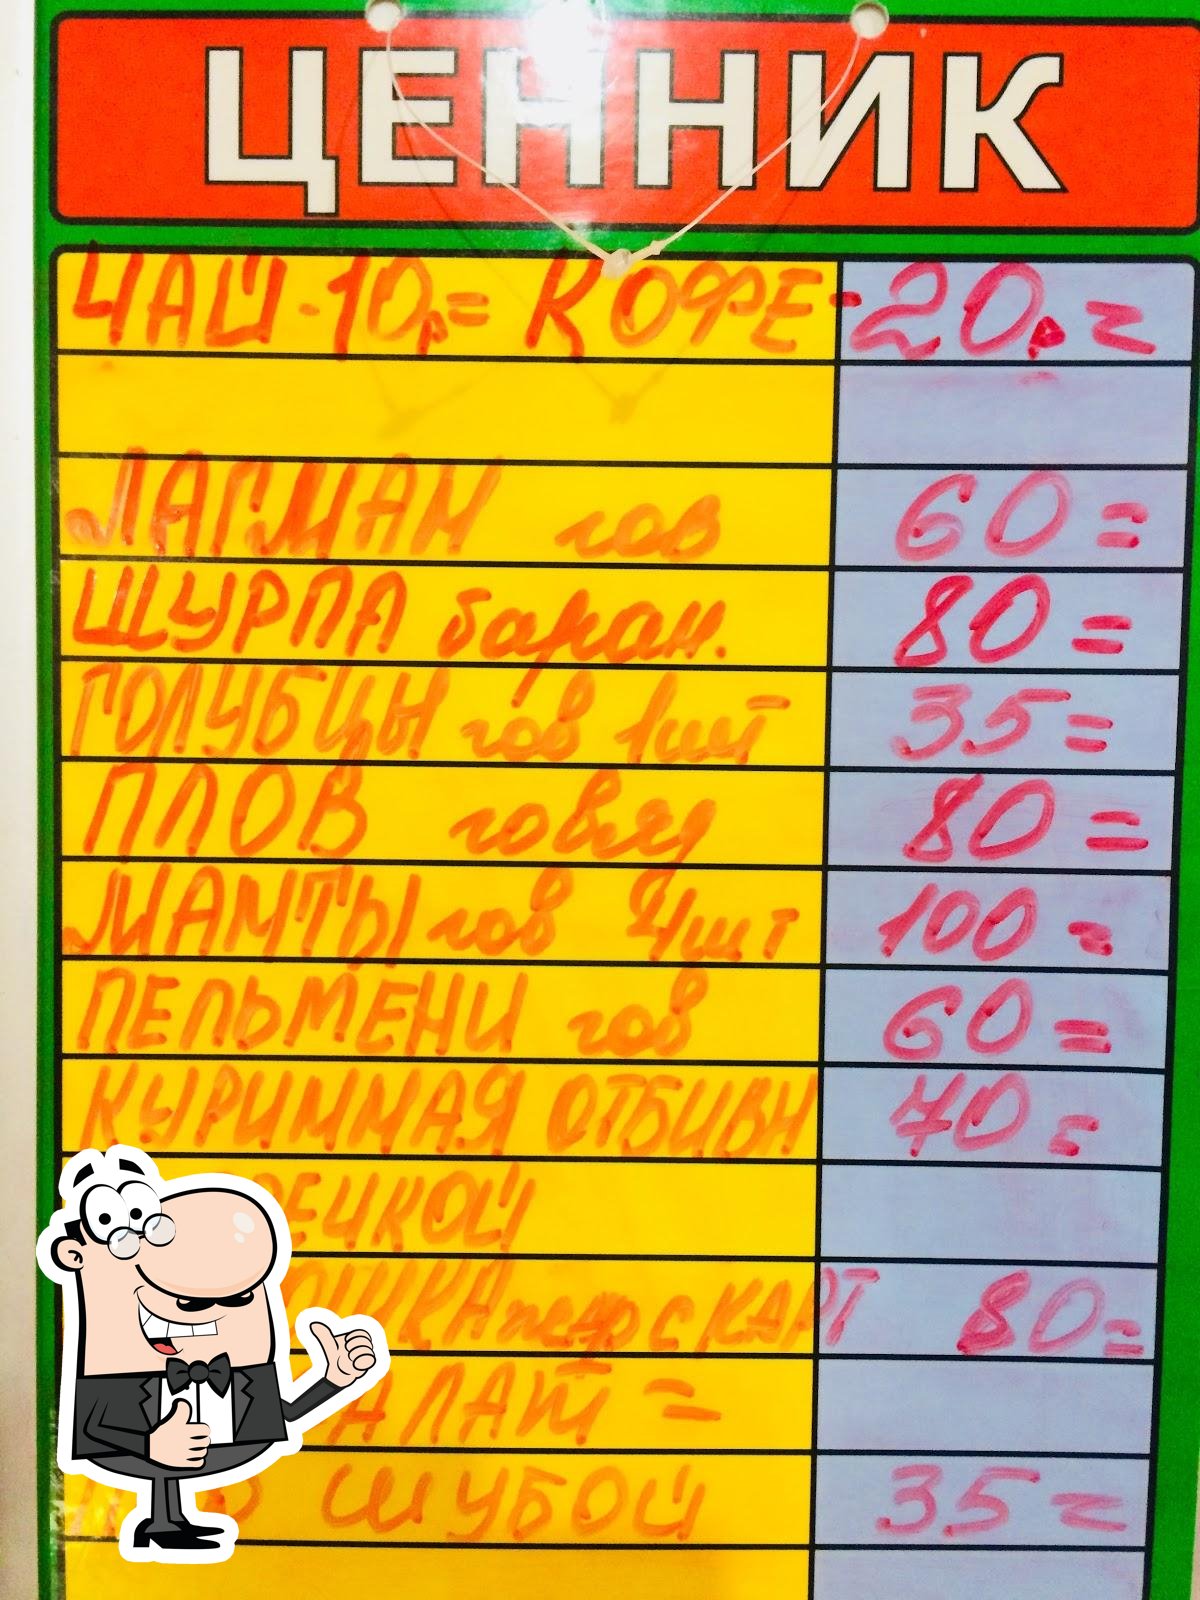 ЦЕННИК
ЧАЙ-10р= КОФЕ-20р=
ЛАГМАН гов 60=
ШУРПА баран. 80=
ГОЛУБЦЫ гов 1шт 35=
ПЛОВ говяд 80=
МАНТЫ гов 4шт 100=
ПЕЛЬМЕНИ гов 60=
КУРИННАЯ ОТБИВН 70=
РЕЧКОЙ
ОШКА жар с КАРТ 80=
АЛАТ =
ШУБОЙ 35=